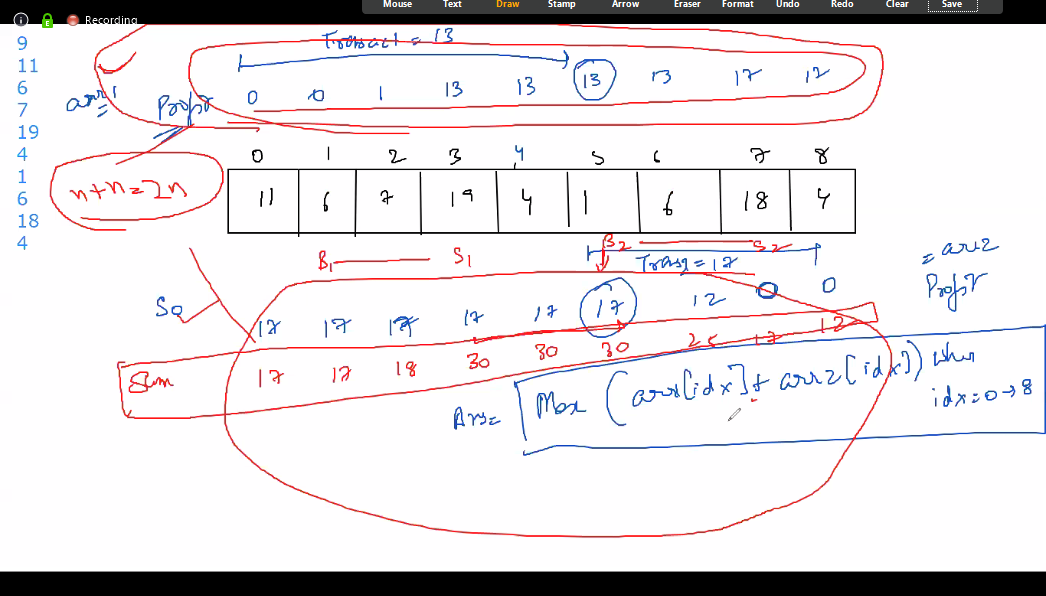 Mouse Text Draw Stamp Arrow Eraser Format Undo Redo Clear Save
Recording
9
11
6
7
19
4
1
6
18
4
Transact = 13
arr1
Profit
0 0 1 13 13 13 13 17 17
0 1 2 3 4 5 6 7 8
11 6 7 19 4 1 6 18 4
n+n=2n
B1 S1
B2 S2
Trans2 = 17
= arr2
Profit
So
17 17 17 17 17 17 12 0 0
Sum
17 17 18 30 30 30 25 17
Ans= Max (arr1[idx] + arr2[idx]) when
idx=0→8